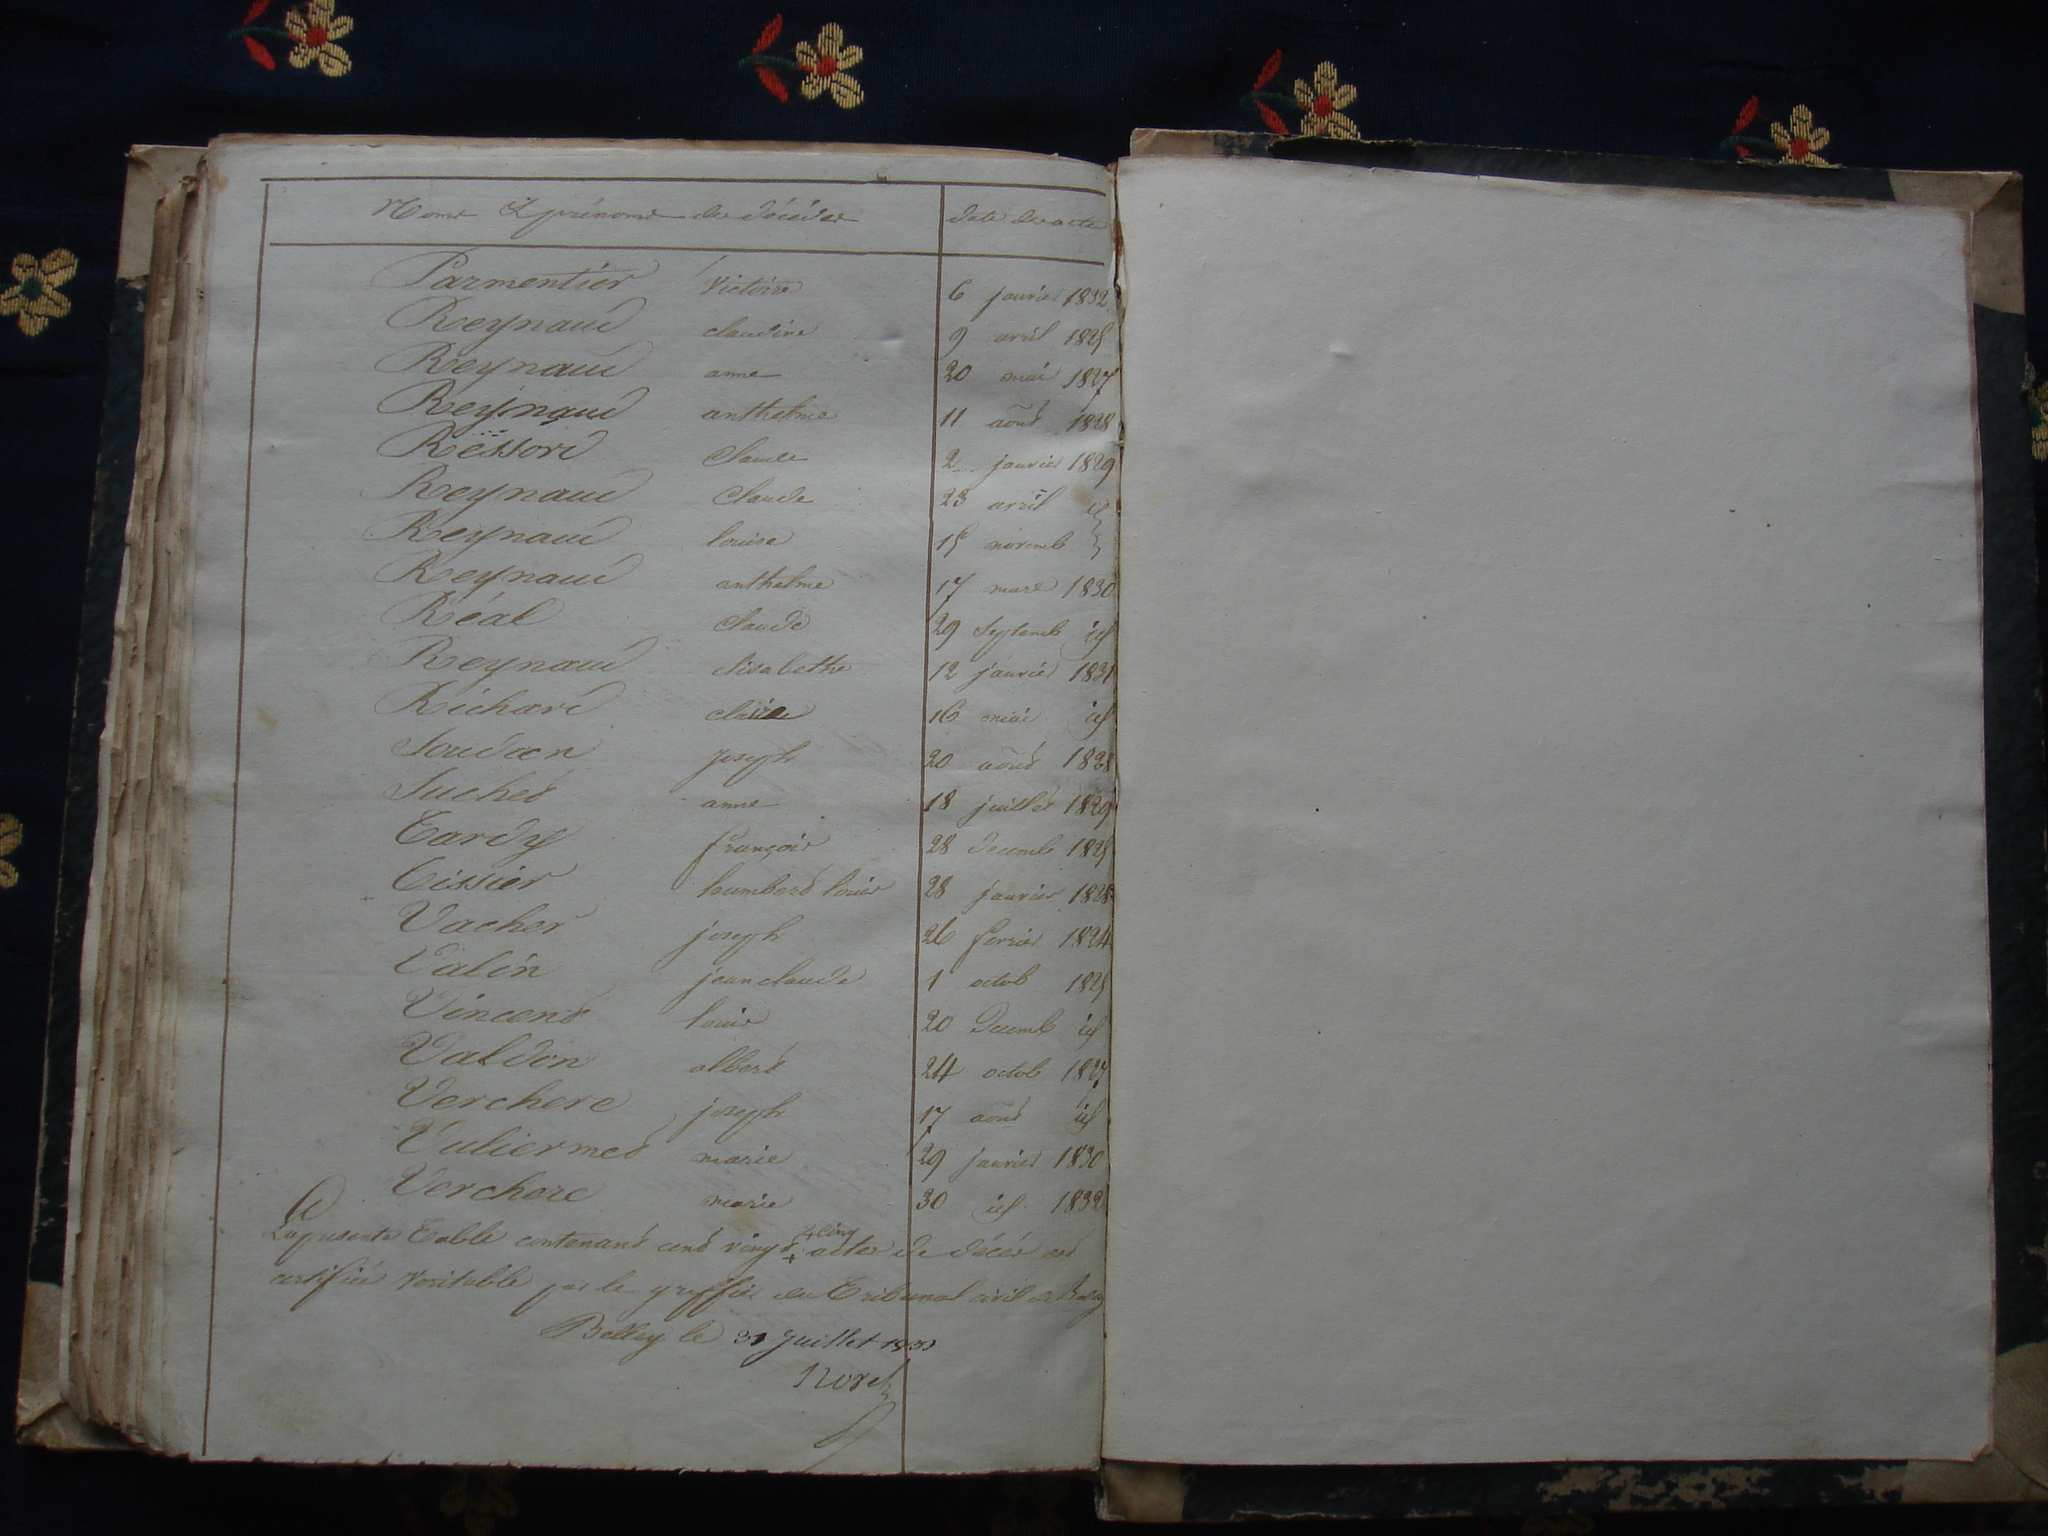 Noms & prénoms des décédés date des actes
Parmentier Victoire 6 janvier 1832
Reynaud claudine 9 avril 1825
Reynaud anne 20 mai 1827
Reynaud anthelme 11 août 1828
Ressord Claude 2 janvier 1829
Reynaud Claude 23 avril id
Reynaud louise 15 novemb
Reynaud anthelme 17 mars 1830
Réal Claude 29 Septemb id
Reynaud Elisabethe 12 janvier 1831
Richard 16 mai id
Soudan joseph 20 août 1828
Suchet anne 18 juillet 1829
Tardy françois 28 Decemb 1825
Tissier louis 28 janvier 1828
Vacher joseph 26 fevrier 1824
Valin jean claude 1 octob 1825
Vincent louis 20 Decemb id
Valdon albert 24 octob 1827
Verchere joseph 17 août id
Vuliermet marie 29 janvier 1830
Verchere marie 30 id 1832
La presente Table contenant cent vingt cinq actes de décès est
certifiée veritable par le greffier du Tribunal civil de
Belley le 31 juillet 1833